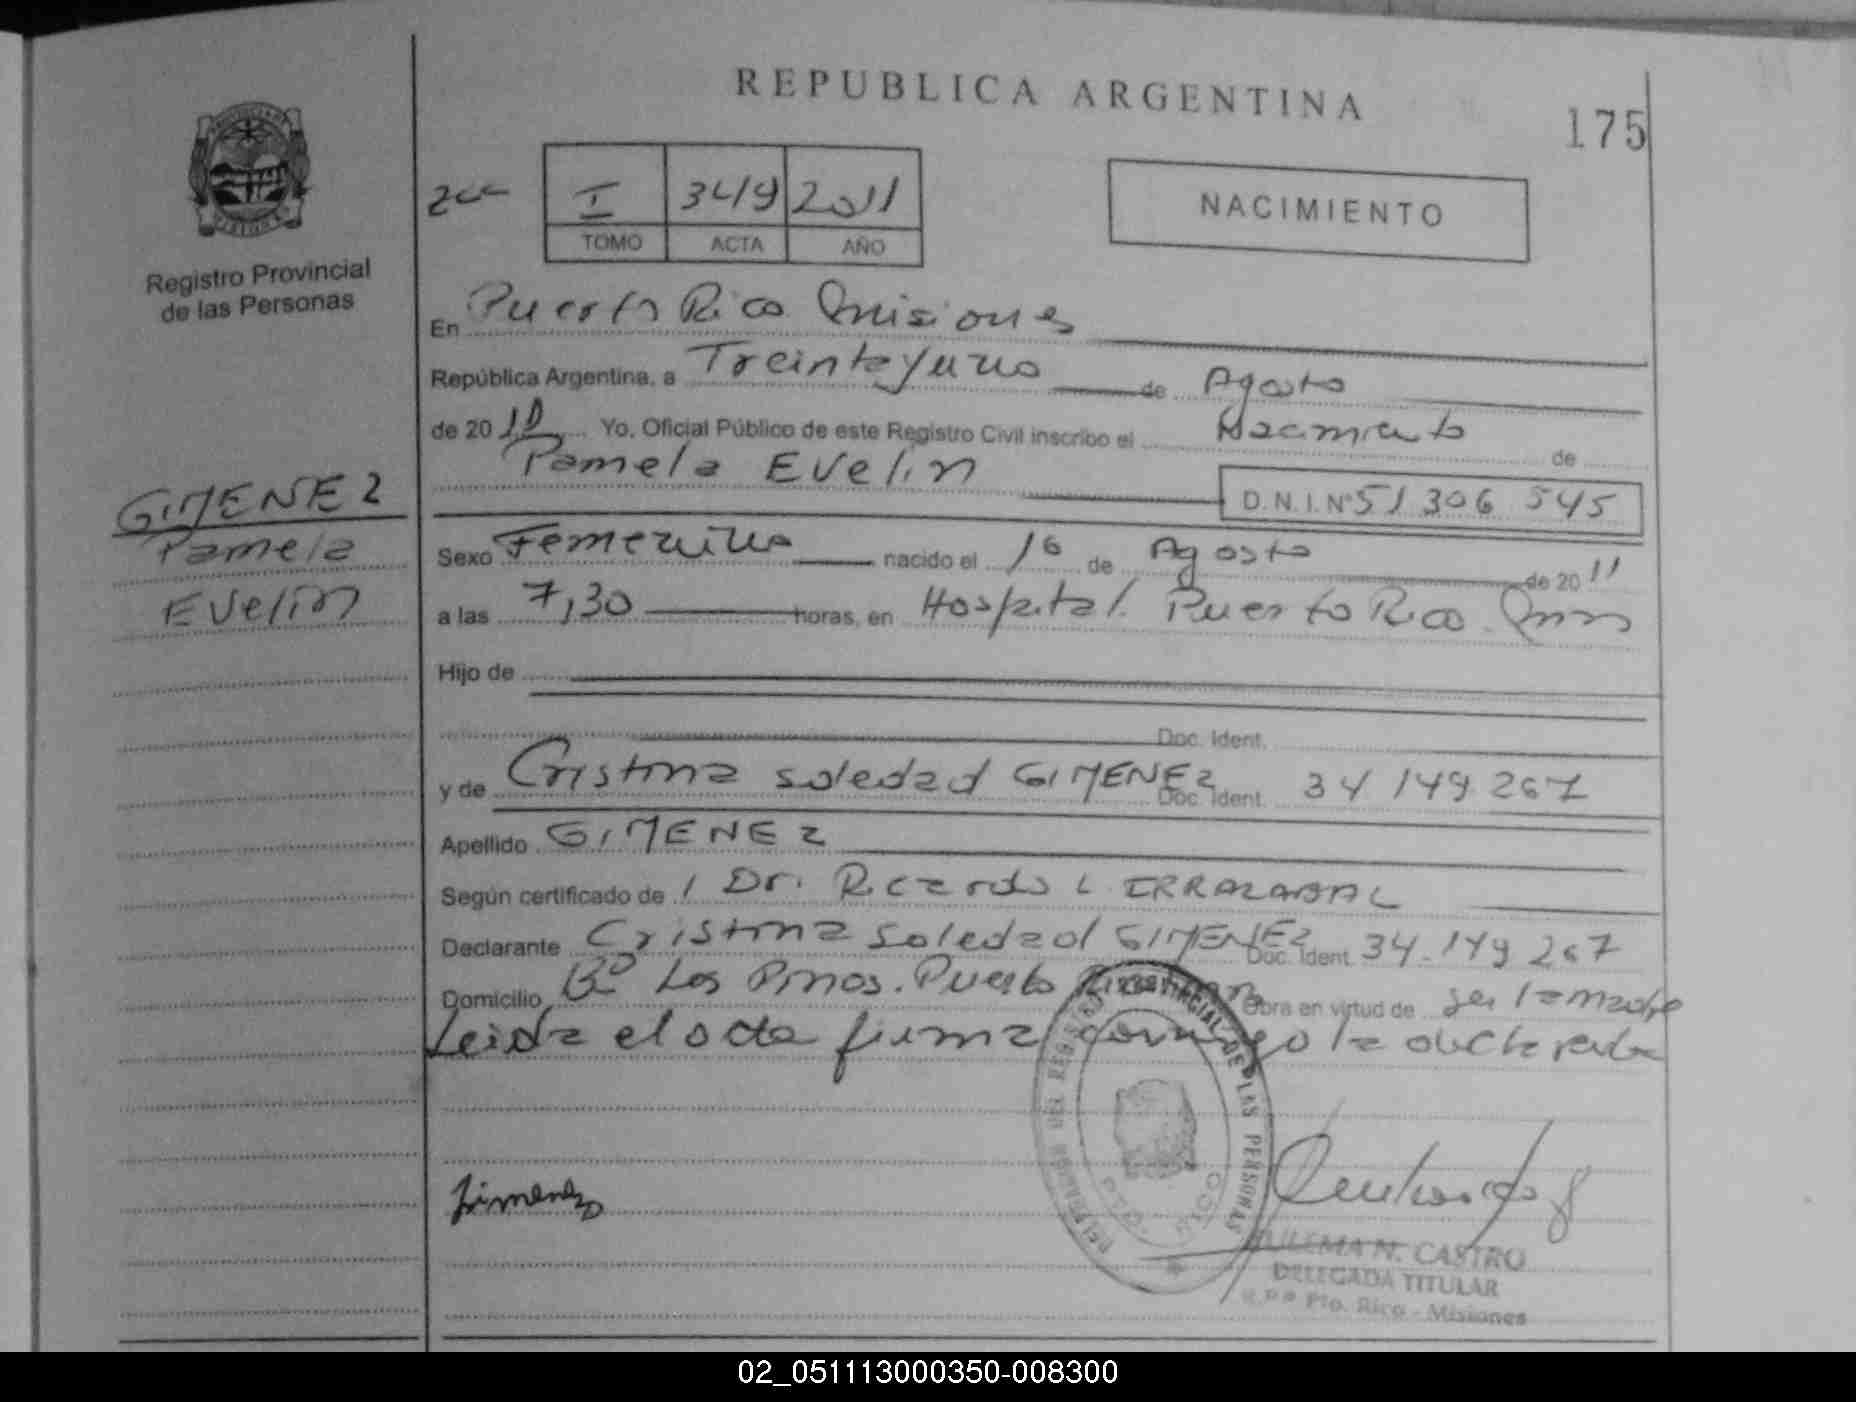 REPUBLICA ARGENTINA
175
I 349 2011
TOMO ACTA AÑO
NACIMIENTO
Registro Provincial
de las Personas
En Puerto Rico Misiones
República Argentina, a Treintayuno de Agosto
de 20 11 Yo, Oficial Público de este Registro Civil inscribo el Nacimiento de
Pamela Evelin D.N.I. Nº 51 306 545
GIMENEZ
Pamela
Evelin
Sexo Femenino nacido el 16 de Agosto de 20 11
a las 7,30 horas, en Hospital. Puerto Rico. Mnes
Hijo de
Doc. Ident.
y de Cristina Soledad GIMENEZ Doc. Ident. 34 149 267
Apellido GIMENEZ
Según certificado de Dr. Ricardo L. IRRAZABAL
Declarante Cristina Soledad GIMENEZ Doc. Ident. 34.149 267
Domicilio Bº Los Pinos. Puerto Rico Obra en virtud de ser la madre
Leida el acta firma conmigo la declarante
Gimenez
DELEGADA TITULAR
R.P.P Pto. Rico - Misiones
ZULEMA N. CASTRO
DELEGACION DEL REGISTRO PROVINCIAL DE LAS PERSONAS
PTO. RICO
02_051113000350-008300